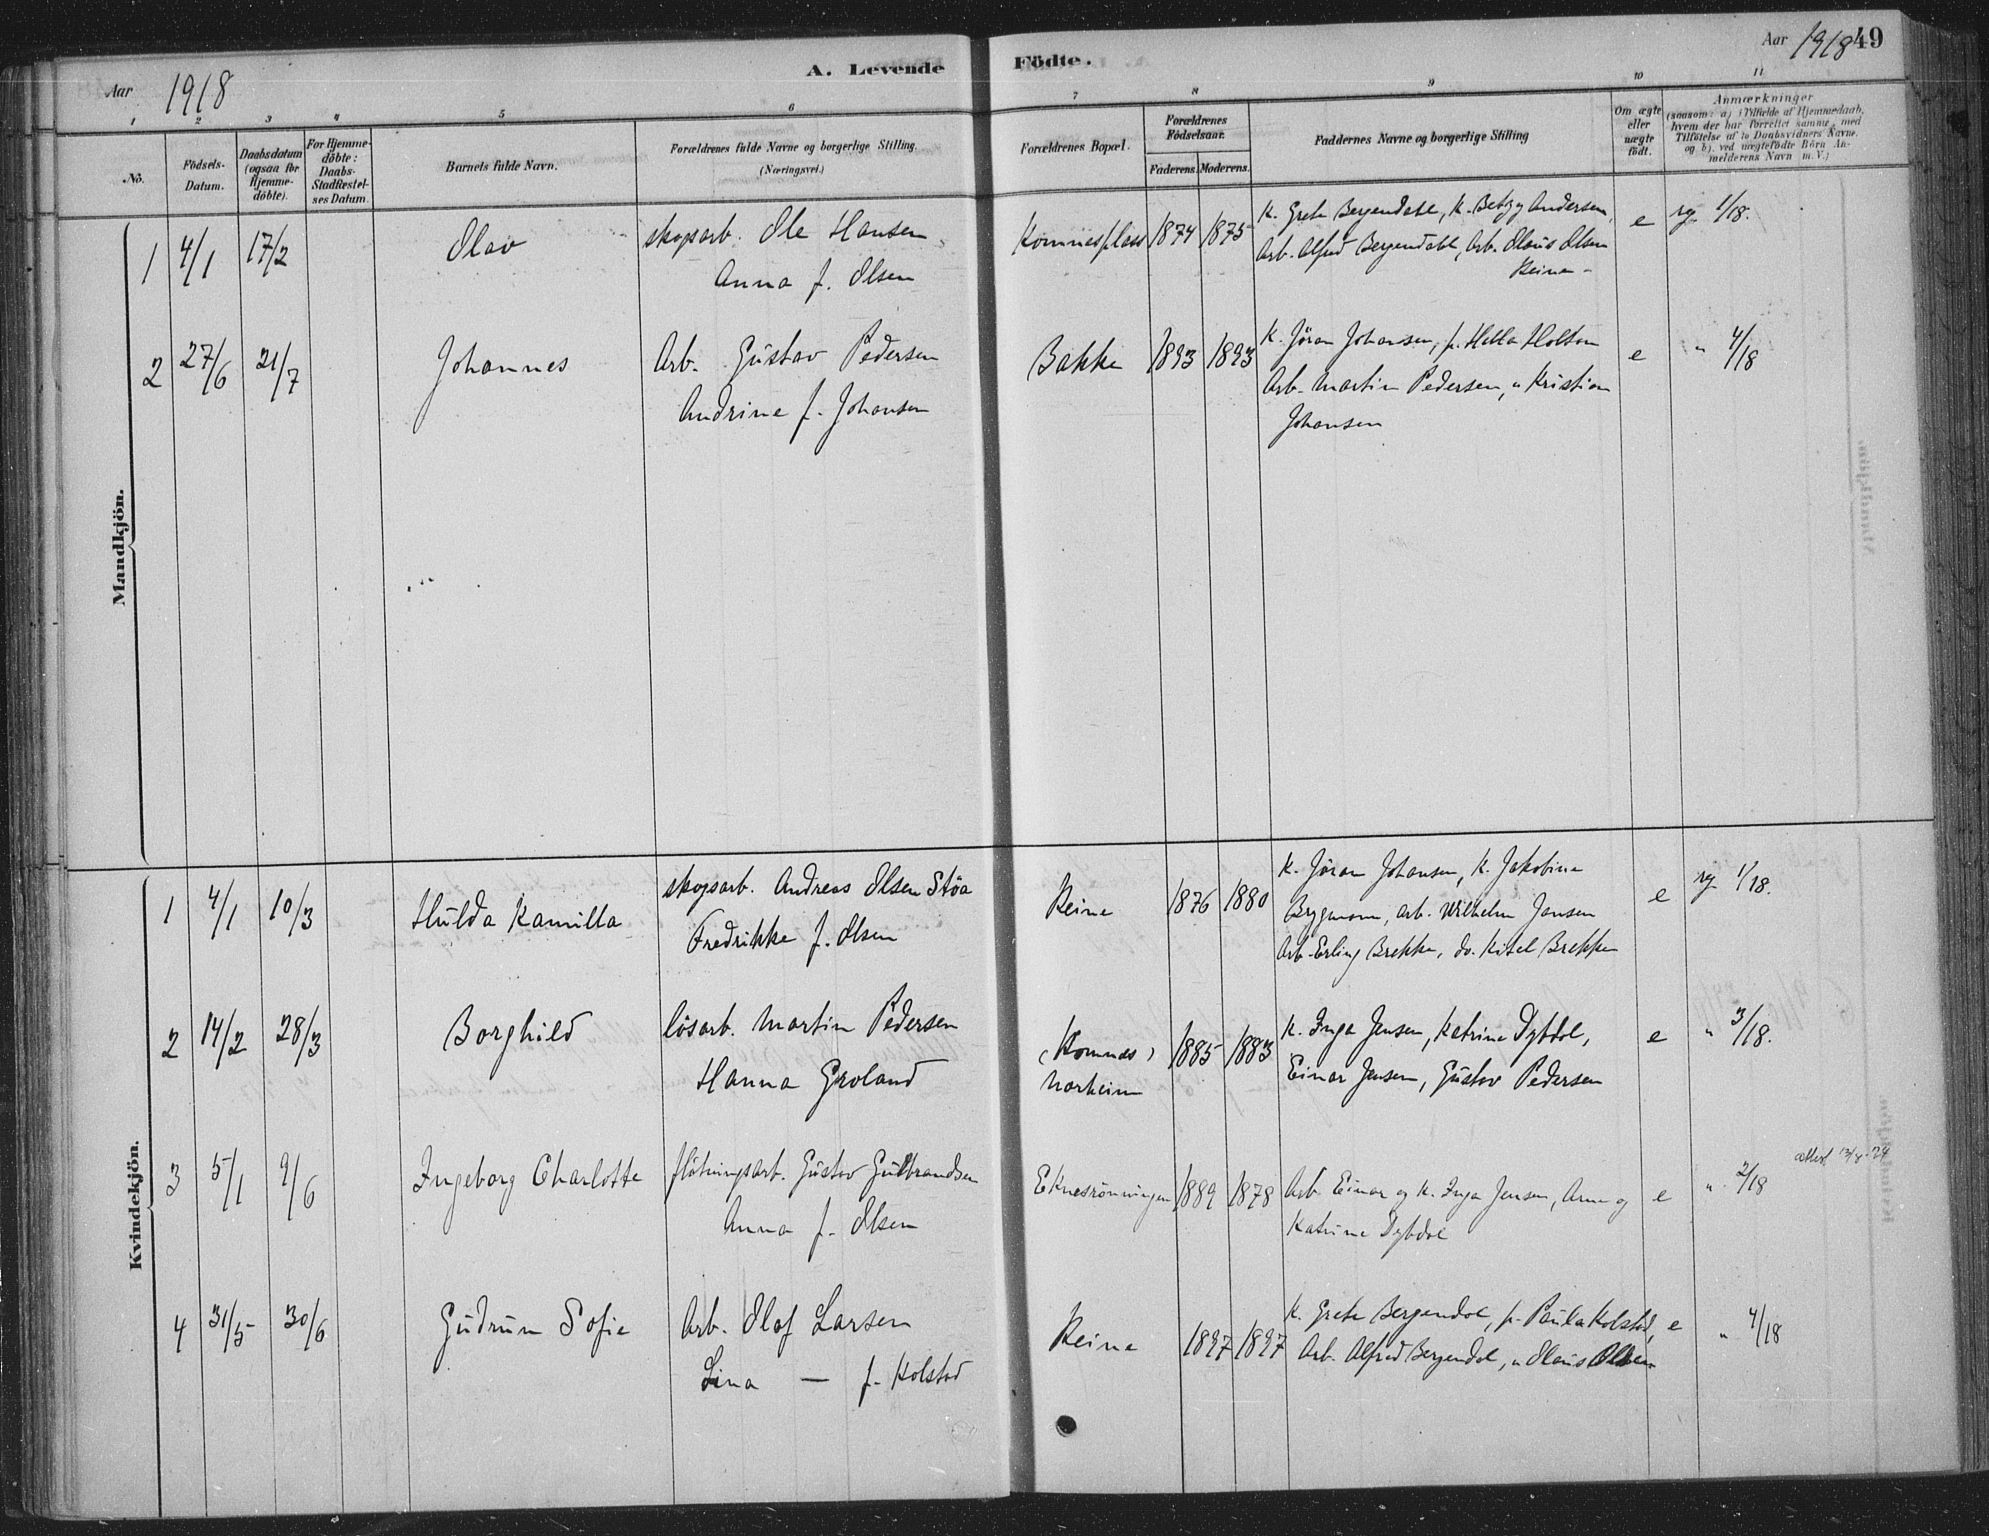 Aar 1918
A. Levende Födte.
Aar 1918 49
1 2 3 4 5 6 7 8 9 10 11
No.
Födsels-Datum.
Daabsdatum (ogsaa for Hjemme-döbte).
For Hjemme-döbte: Daabs-Stadfæstel-ses Datum.
Barnets fulde Navn.
Forældrenes fulde Navne og borgerlige Stilling.
(Næringsvei.)
Forældrenes Bopæl.
Forældrenes Födselsaar.
Faderens. Moderens.
Faddernes Navne og borgerlige Stilling
Om ægte eller uægte födt.
Anmærkninger
(saasom: a) i Tilfælde af Hjemmedaab,
hvem der har forrettet samme, med
Tilföielse af to Daabsvidners Navne,
og b). ved uægtefödte Börn An-
melderens Navn m.V.)
Mandkjön.
1 4/1 17/2 Olav skogsarb. Ole Hansen Komnesplass 1874 1875 K. Grete Bergendahl, K. Betzy Andersen, e rg 1/18.
Anna f. Olsen Arb. Alfred Bergendahl, Arb. Olaus Olsen
Reine -
2 27/6 21/7 Johannes Arb. Gustav Pedersen Bakke 1893 1893 K. Jöran Johansen, p. Helła Holtan e " 4/18
Andrine f. Johansen Arb. Martin Pedersen, " Kristian
Johansen
Kvindekjön.
1 4/1 10/3 Hulda Kamilla skogsarb. Andreas Olsen Stöa Reine 1876 1880 K. Jöran Johansen, K. Jakobine e rg 1/18.
Fredrikke f. Olsen Brygmann, arb. Wilhelm Jansen
Arb. Erling Brekke, do. Kitel Brekke
2 14/2 28/3 Borghild lösarb. Martin Pedersen (Komnes) 1885 1883 K. Inga Jensen, Katrine Dybdal, e " 3/18.
Hanna Groland Norheim Einar Jensen, Gustav Pedersen
3 5/1 9/6 Ingeborg Charlotte flötningsarb. Gustav Gulbrandsen Eknesrönningen 1889 1878 Arb. Einar og K. Inga Jensen, Anna og e " 2/18 attest 13/8-24
Anna f. Olsen Katrine Dybdal
4 31/5 30/6 Gudrun Sofie Arb. Olaf Larsen Reine 1897 1897 K. Grete Bergendal, p. Paula Kolstad, e " 4/18
Lina — f. Kolstad Arb. Alfred Bergendal, " Olaus Olsen